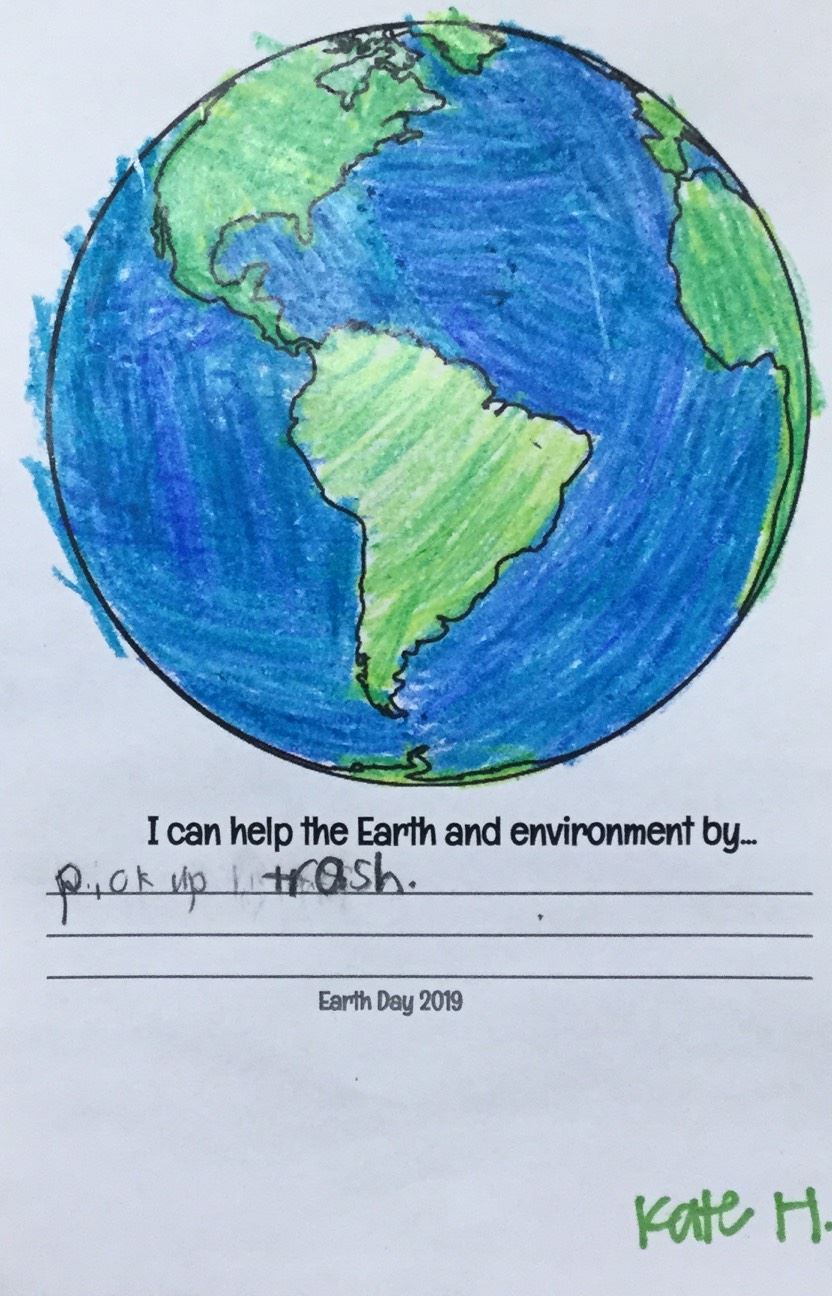 I can help the Earth and environment by...
pick up trash.
Earth Day 2019
Kate H.